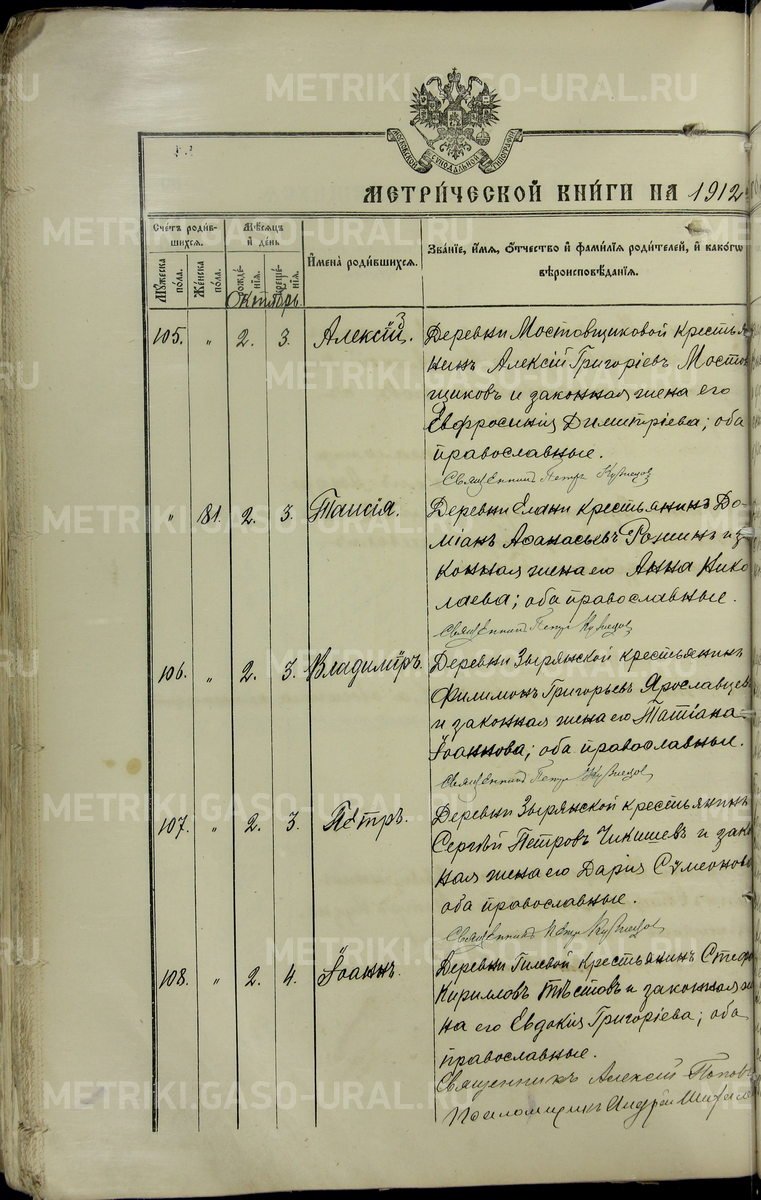 METRIKI.GASO-URAL.RU
МОСКОВСКОЙ СѴНОДАЛЬНОЙ ТИПОГРАФІИ
МЕТРИ́ЧЕСКОЙ КНИ́ГИ НА 1912
Счетъ роди́в-
шихся.
Мѣсяцъ
и҆ де́нь
И҆мена̀ роди́вшихся.
Зва́нїе, и҆́мя, ѻ҆́тчество и҆ фами́лїя роди́телей, и҆ како́гѡ
вѣроисповѣ́данїя.
Мꙋ́жеска
по́ла.
Же́нска
по́ла.
Рожде́-
нїя.
Креще́-
нїя.
Октябрь.
105. „ 2. 3. Алексій.
Деревни Мостовщиковой крестья
нинъ Алексій Григоріевъ Мостов
щиковъ и законная жена его
Евфросинія Димитріева; оба
православные.
Священникъ Петръ Кузнецов
„ 81. 2. 3. Таисія.
Деревни Елани крестьянинъ До-
міанъ Аѳанасьевъ и за
конная жена его Анна Нико
лаева; оба православные.
Священникъ Петръ Кузнецов
106. „ 2. 3. Владиміръ.
Деревни Зырянской крестьянинъ
Филимонъ Григорьевъ Ярославцев
и законная жена его Татіана
Іоаннова; оба православные.
Священникъ Петръ Кузнецов
107. „ 2. 3. Петръ.
Деревни Зырянской крестьянинъ
Сергѣй Петровъ Чикишевъ и закон
ная жена его Дарія Сѵмеонова
оба православные.
Священникъ Петръ Кузнецов
108. „ 2. 4. Іоаннъ.
Деревни Гилевой крестьянинъ Стеф
Кирилловъ Тѣстовъ и законная же
на его Евдокія Григоріева; оба
православные.
Священникъ Алексій Поповъ
Псаломщикъ Андрей